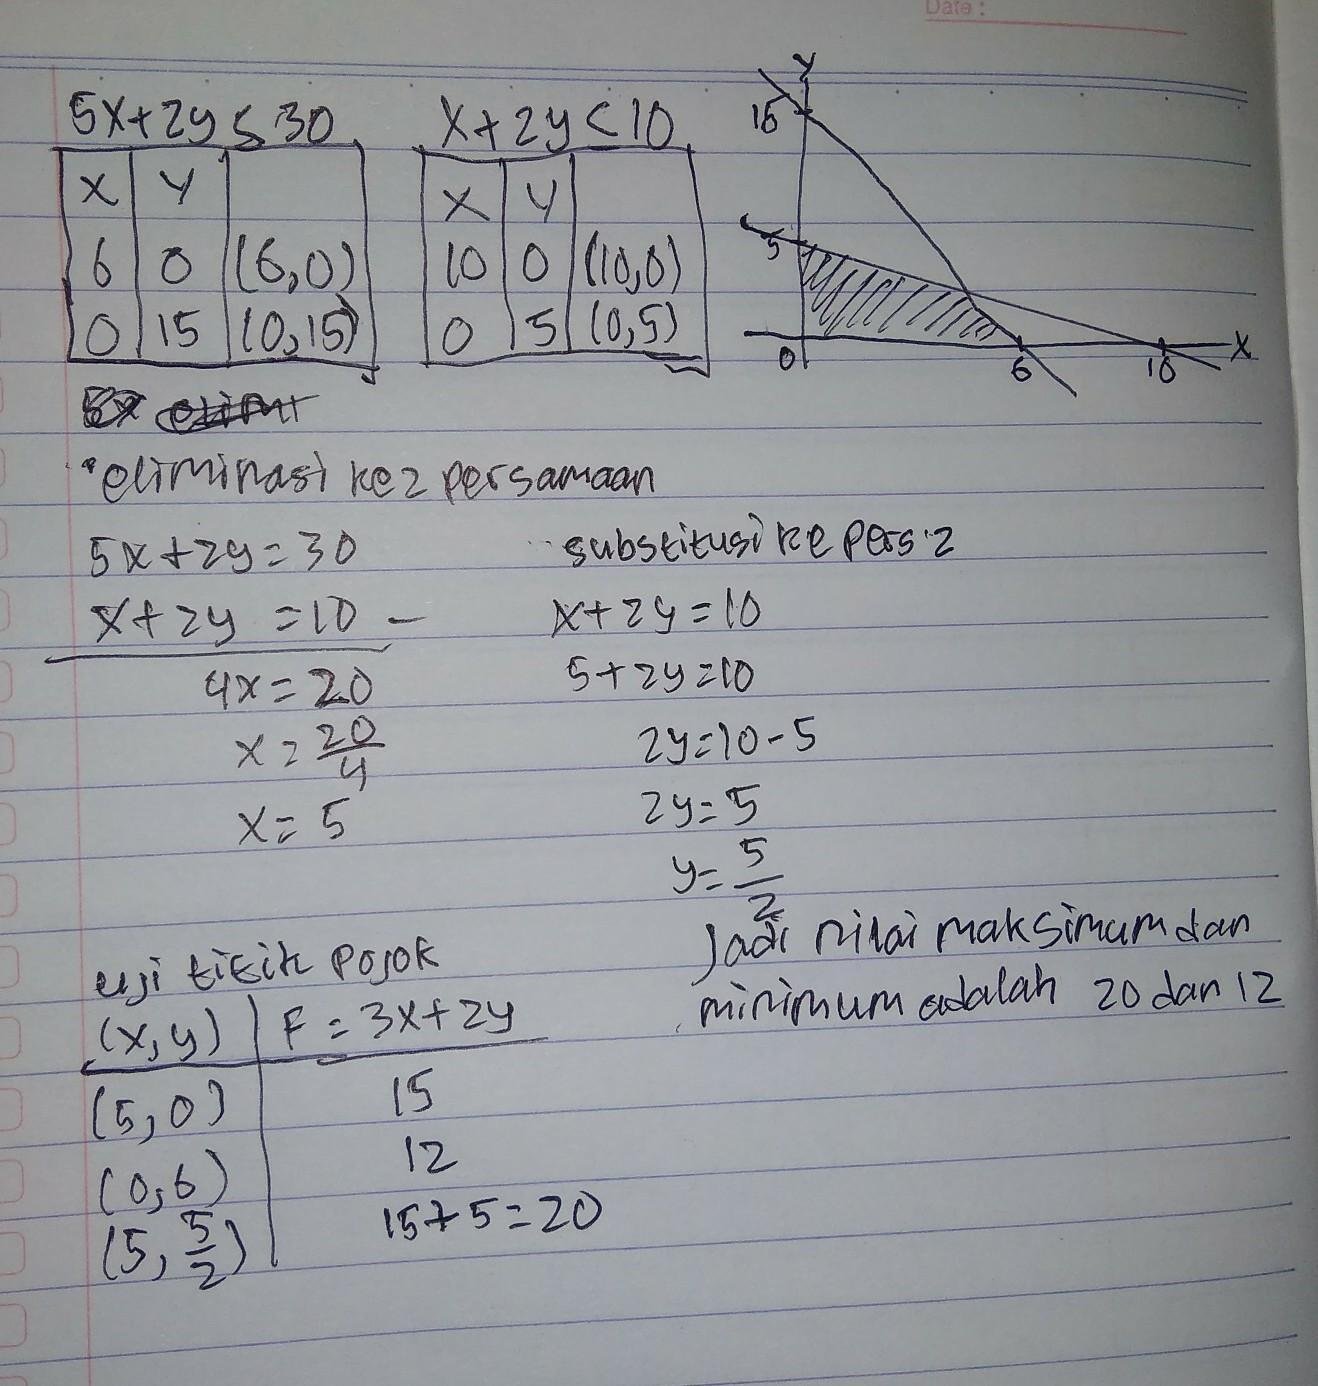 Date :
5x+2y ≤ 30
x y
6 0 (6,0)
0 15 (0,15)
x+2y ≤ 10
x y
10 0 (10,0)
0 5 (0,5)
Y
15
5
0 6 10 X
• eliminasi ke2 persamaan
5x+2y=30
x+2y =10 –
4x=20
x = 20/4
x = 5
substitusi ke pers.2
x+2y=10
5+2y=10
2y=10-5
2y=5
y= 5/2
uji titik pojok
(x,y) F = 3x+2y
(5,0) 15
(0,6) 12
(5, 5/2) 15+5=20
Jadi nilai maksimum dan
minimum adalah 20 dan 12